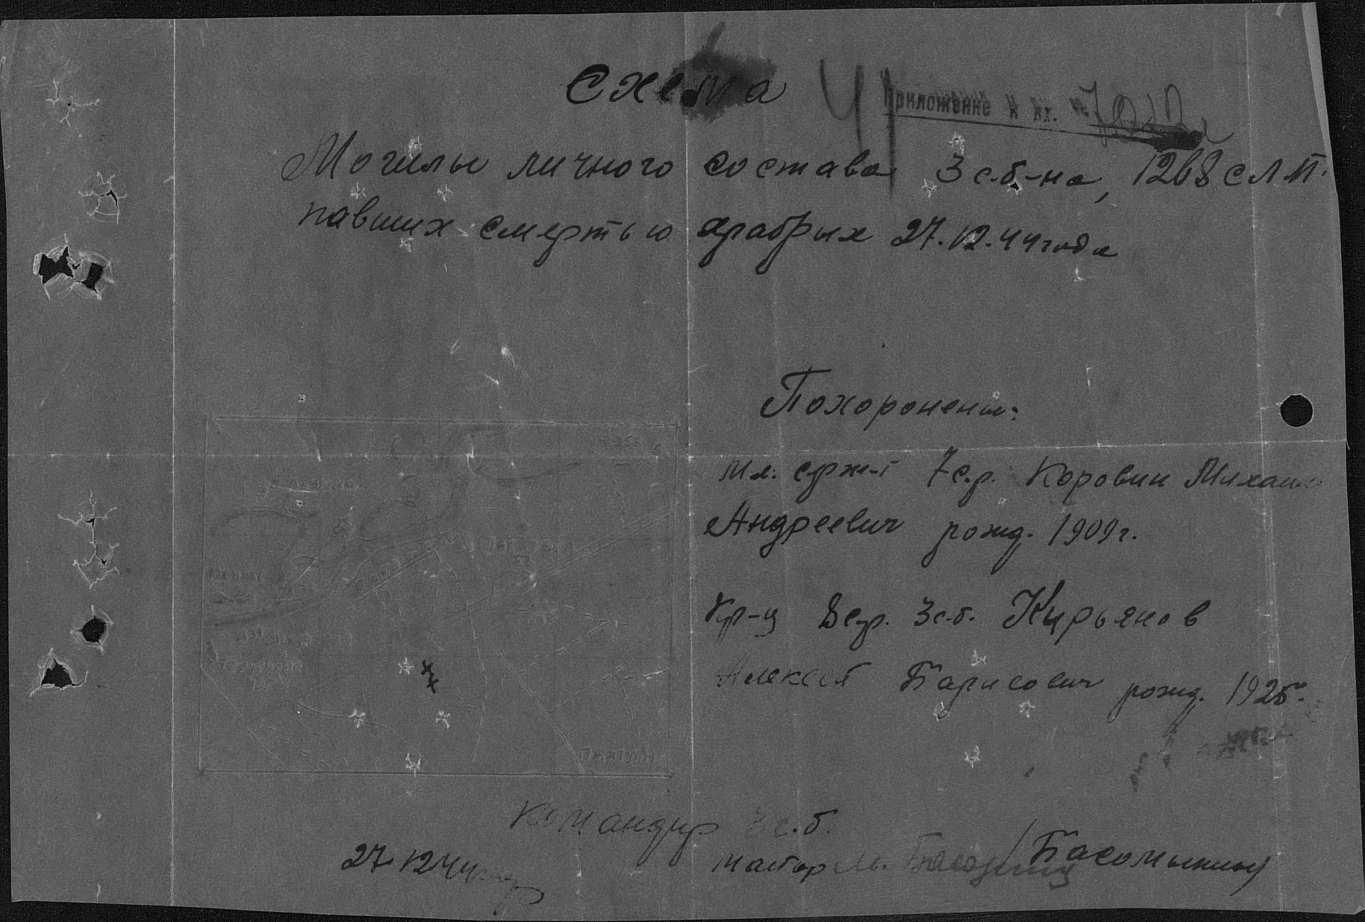 Схема
Приложение к вх. №
Могилы личного состава 3 с-б-на, 1268 с.п.
павших смертью храбрых 27.12.44 года
Похоронены:
Мл. серж-т 7 с.р. Коровин Михаил
Андреевич рожд. 1909 г.
Кр-ц 8 с.р. 3 с.б. Кирьянов
Алексей Барисович рожд. 1925.
Командир 3 с.б.
27.12.44
майор